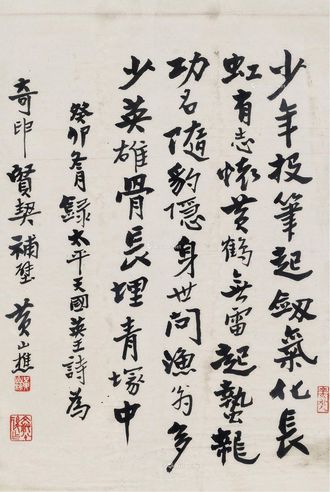 少年投筆起劔氣化長
虹有志懷黄鶴無雷起蟄龍
功名隨豹隱身世問漁翁多
少英雄骨長埋青塚中
癸卯冬月錄太平天國英王詩為
奇印賢契補壁 黄山樵